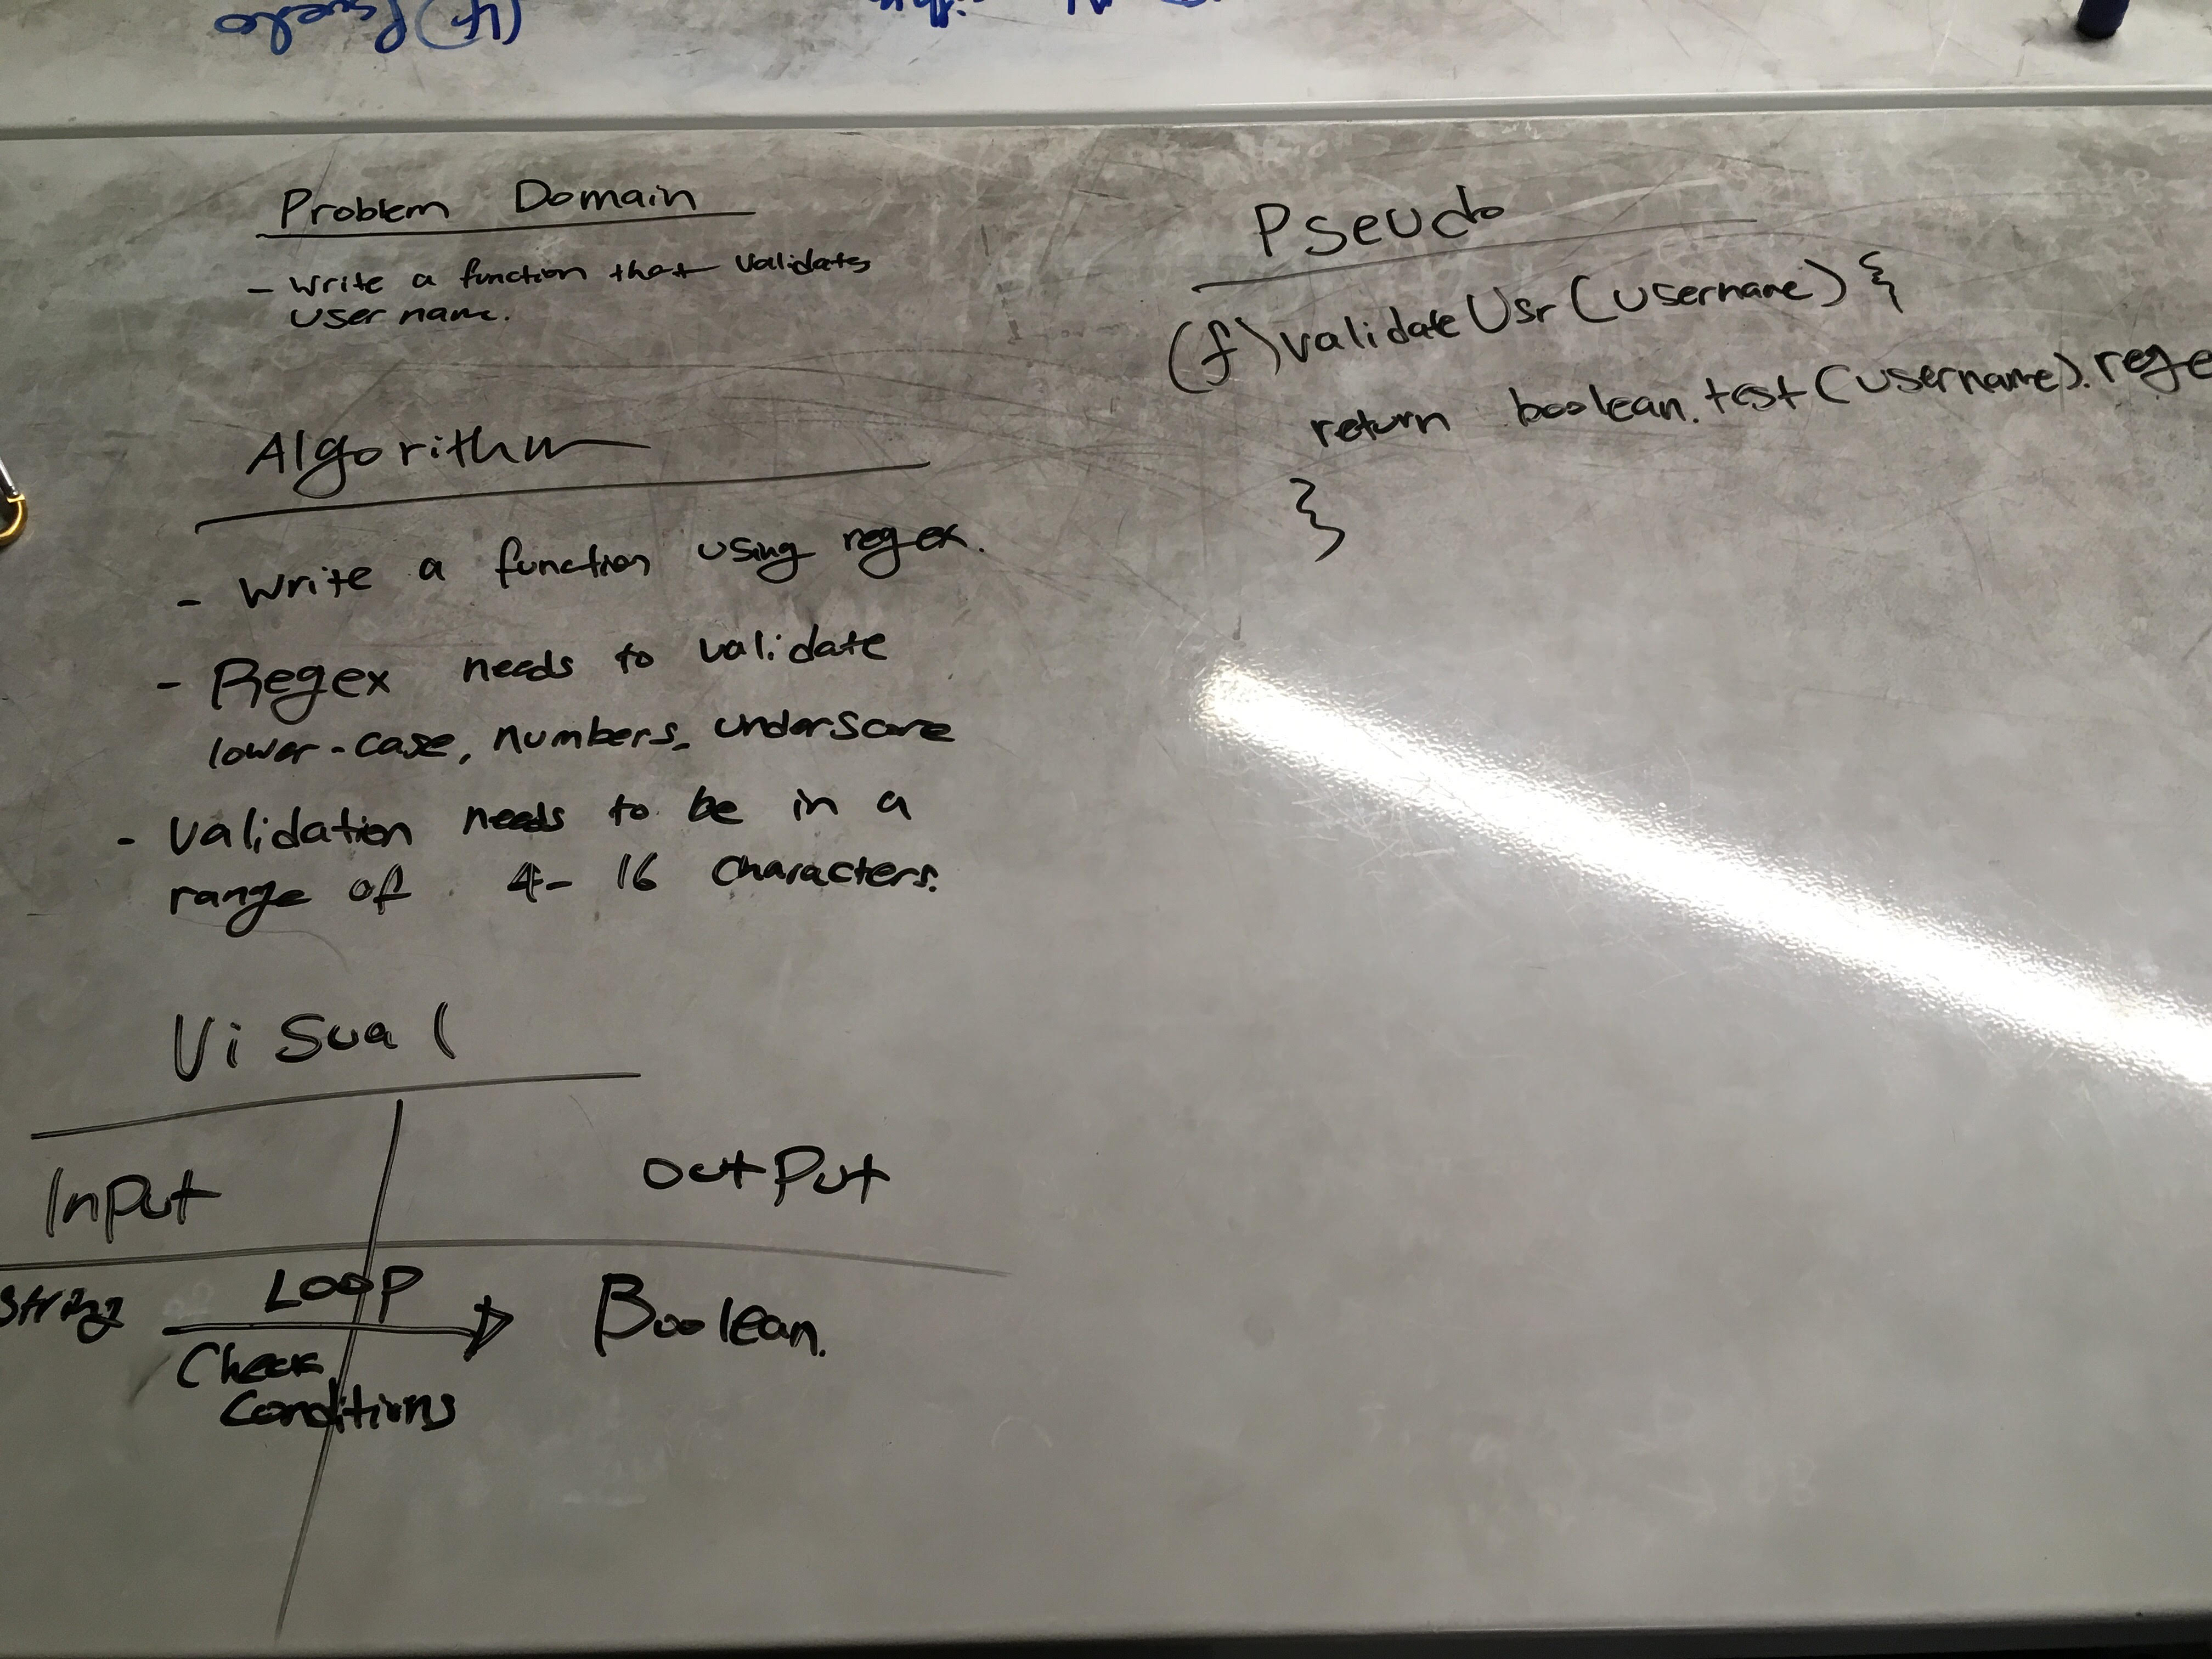 Problem Domain
- Write a function that validates
user name.
Algorithm
- Write a function using regex.
- Regex needs to validate
lower-case, numbers, underscore
- Validation needs to be in a
range of 4-16 characters.
Visual
Input output
String LOOP Boolean.
Check
Conditions
Pseudo
(f) validateUsr(username) {
return boolean.test(username).rege
}